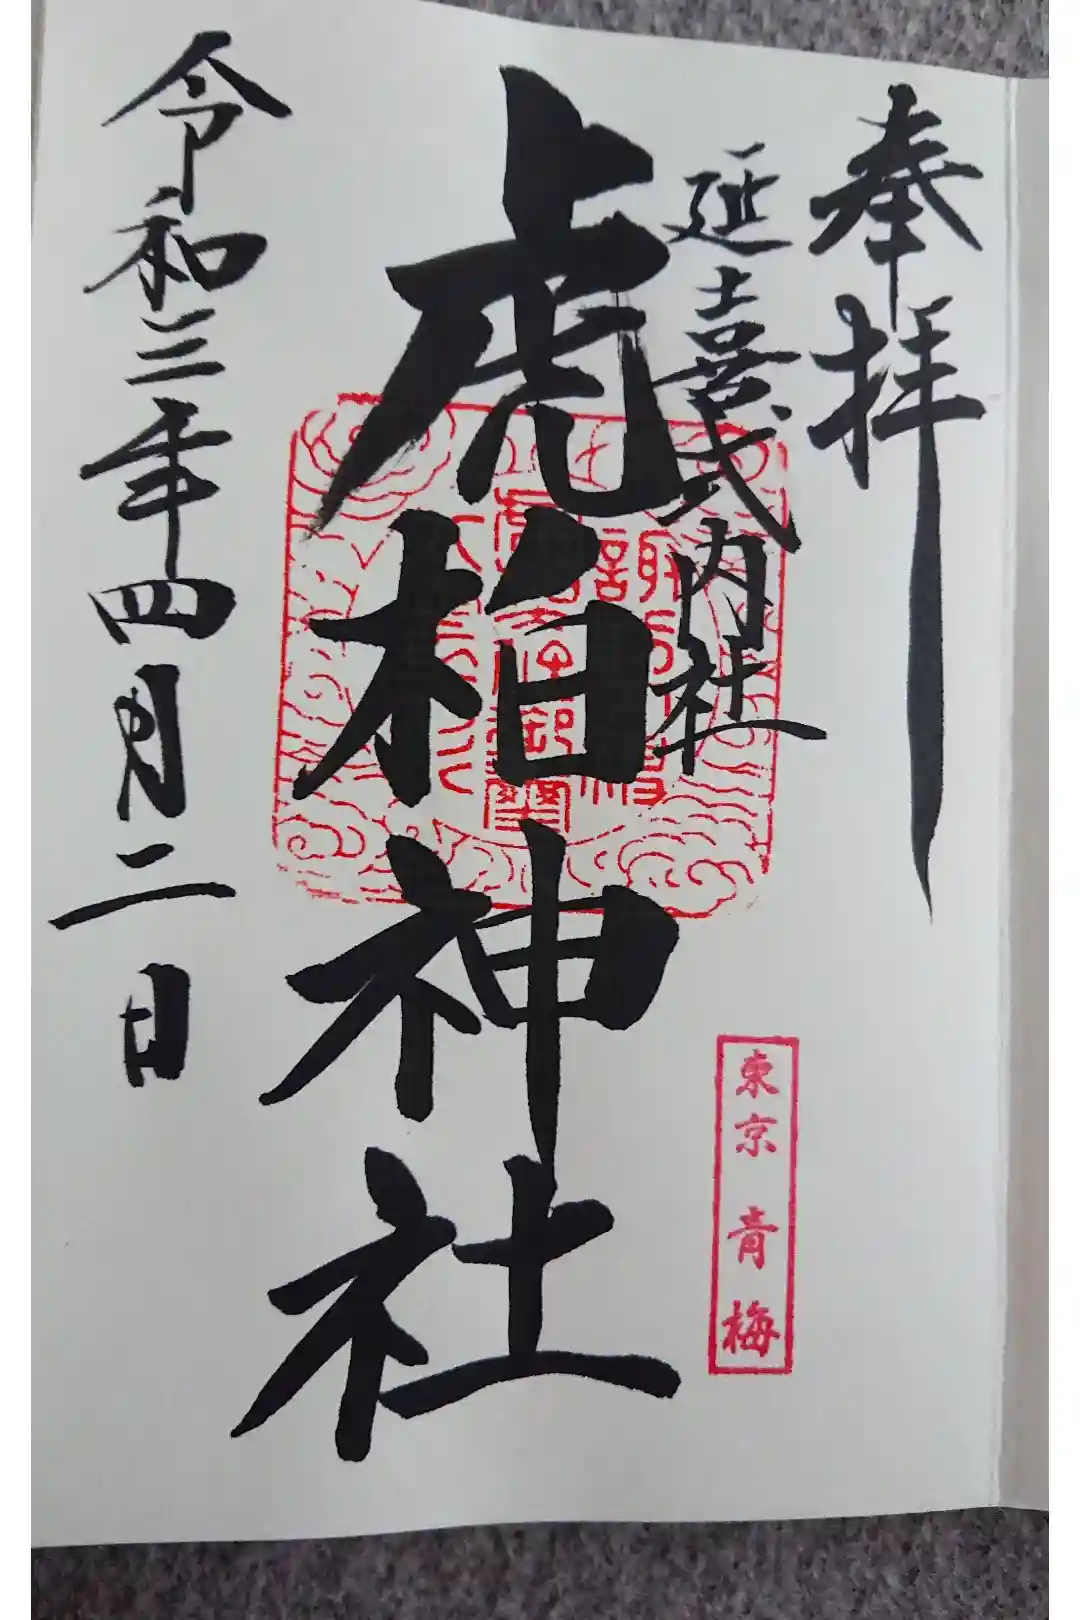 奉拝
延喜式内社
東京 青梅
虎柏神社
令和三年四月二日